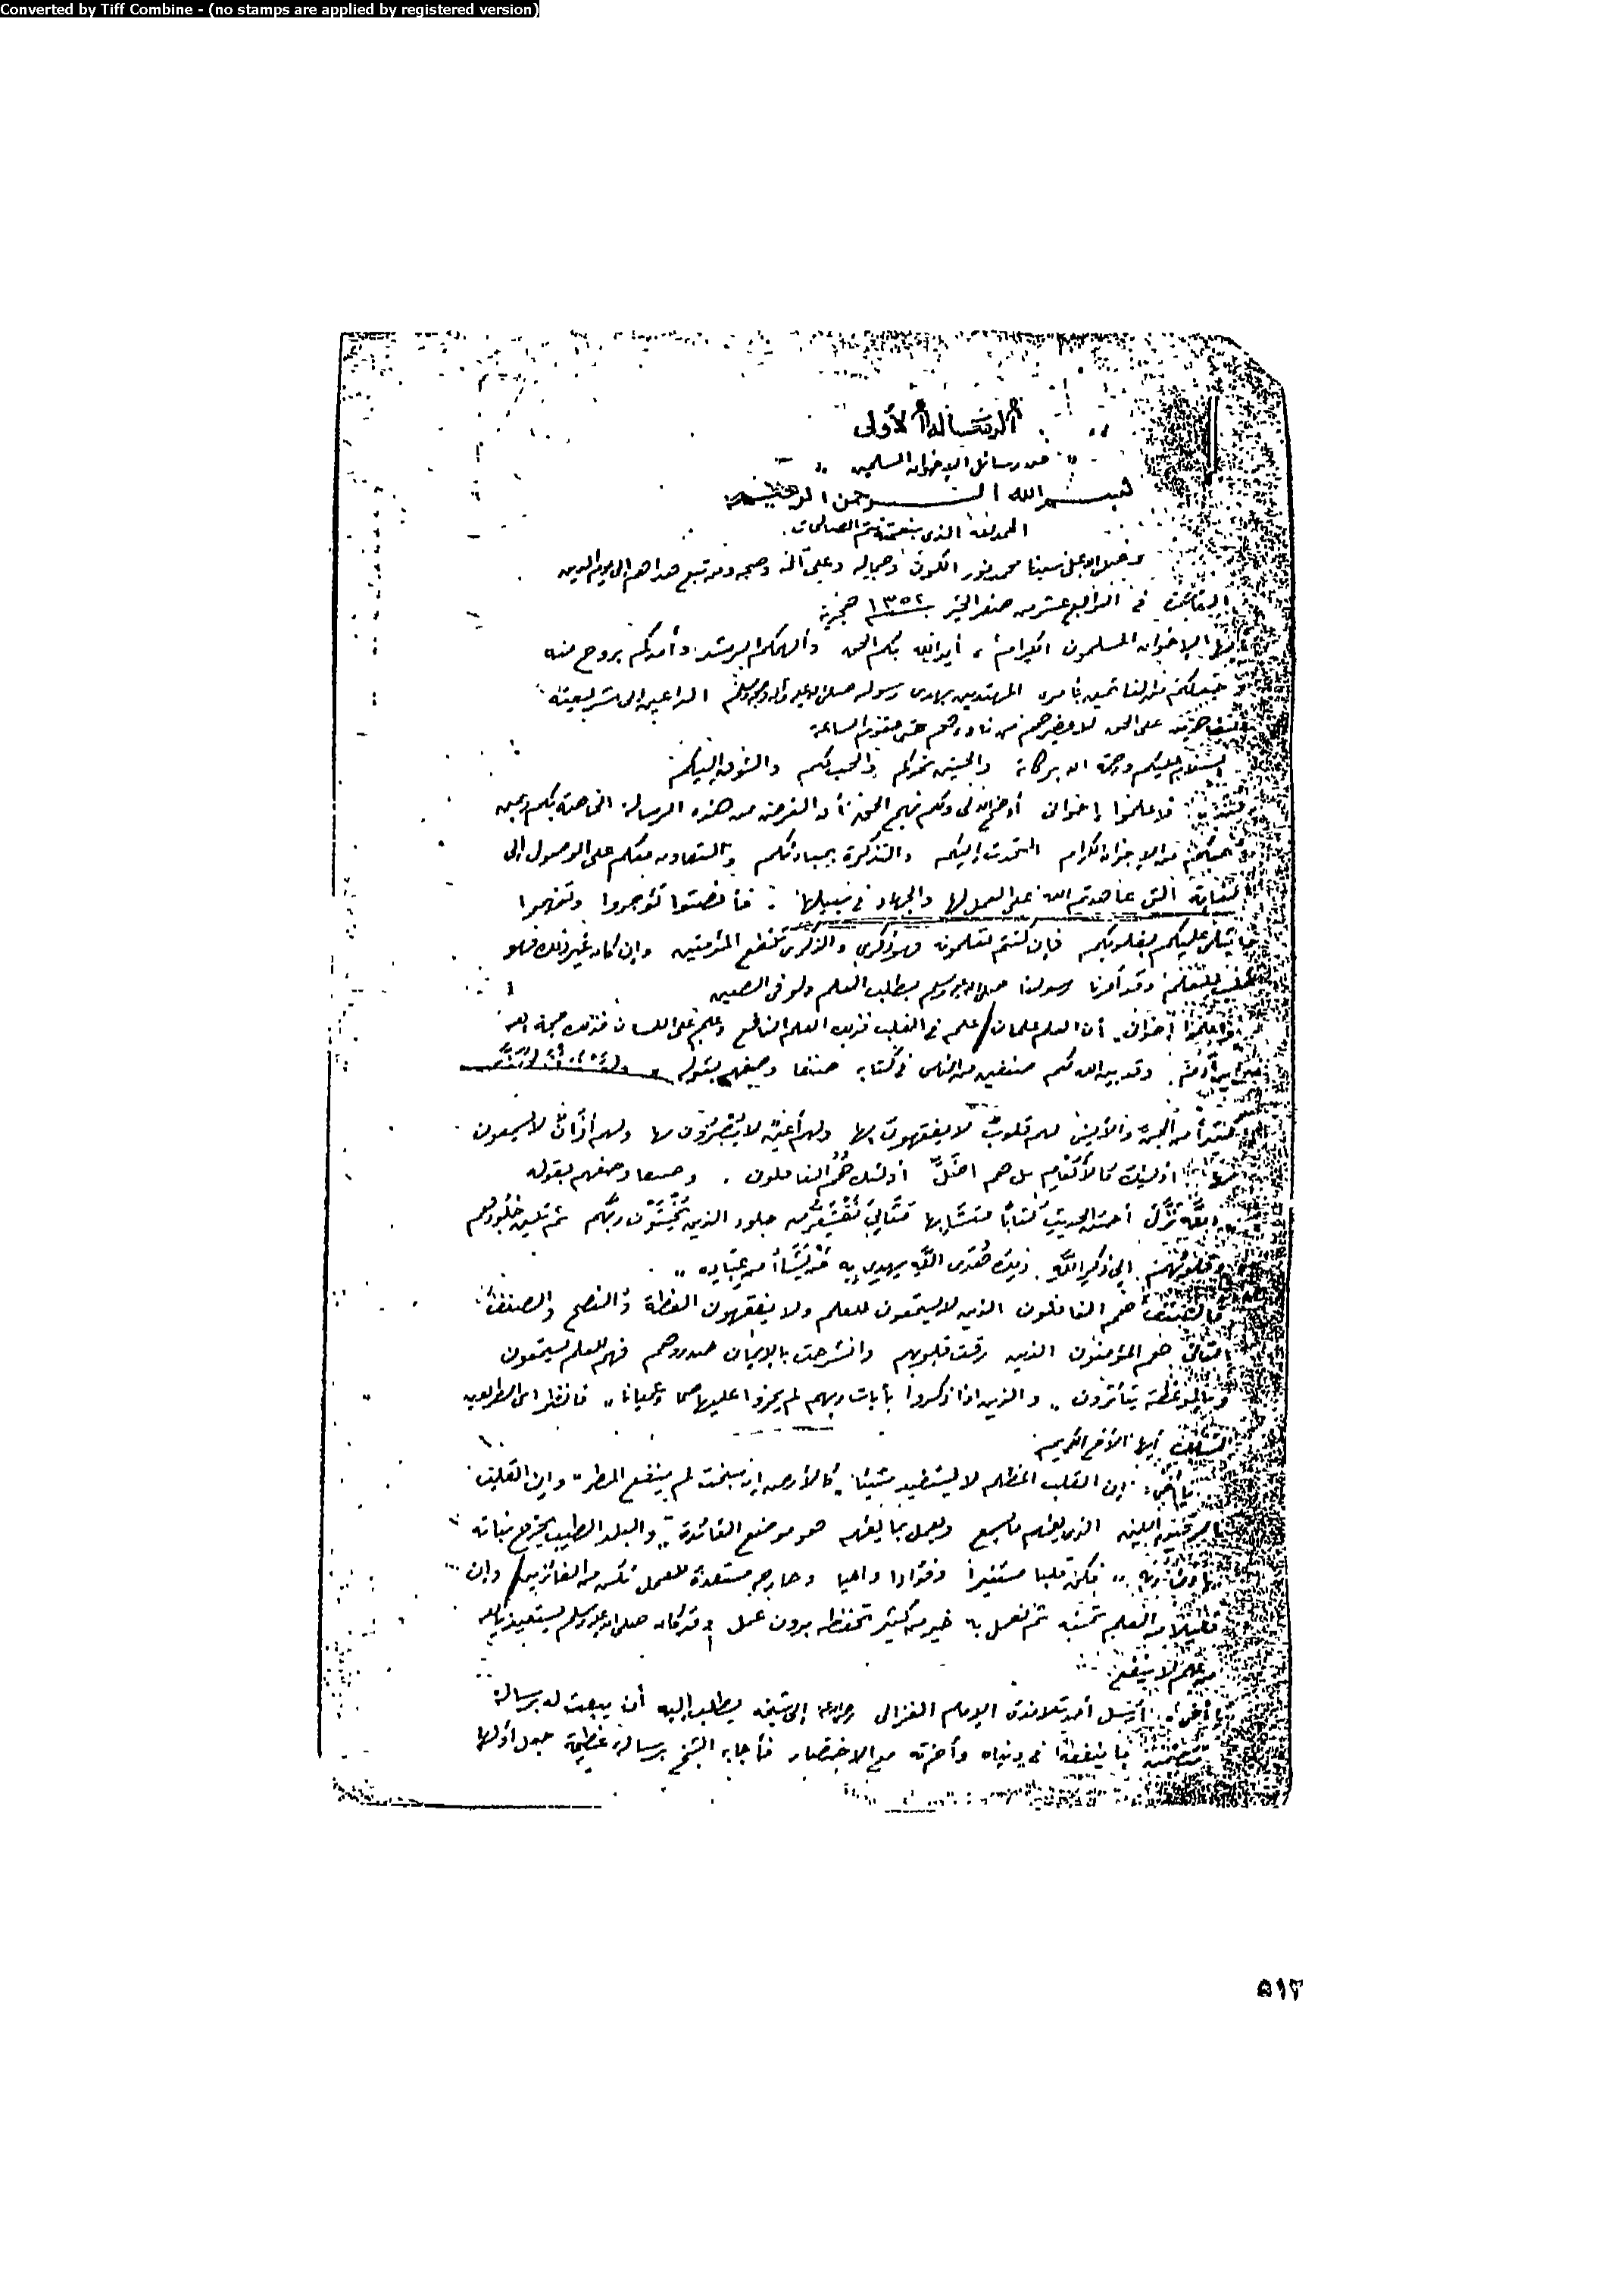 Converted by Tiff Combine - (no stamps are applied by registered version)
الرسالة الأولى
" من رسائل الإخوان المسلمين "
بسم الله الرحمن الرحيم
الحمد لله الذى بنعمته تتم الصالحات .
وصلى الله على سيدنا محمد نور الكون وجماله وعلى آله وصحبه ومن تبع هداهم إلى يوم الدين
القاهرة فى الرابع عشر من صفر الخير سنة ١٣٥٢ هجرية
أيها الإخوان المسلمون الكرام ، أيد الله بكم الحق وألهمكم الرشد وأمدكم بروح منه
وجعلكم من القائمين بأمره المهتدين بهدى رسوله صلى الله عليه وآله وصحبه وسلم الداعين إلى شريعته
على الحق لا يضرهم من ناوءهم حتى تقوم الساعة
السلام عليكم ورحمة الله وبركاته والحنين نحوكم والحب لكم والشوق إليكم
فاعلموا يا إخوانى أوضح الله لى ولكم نهج الحق أن الغرض من هذه الرسالة الخاصة بكم
من الإخوان الكرام التحدث إليكم والتذكرة بمبادئكم والتعاون معكم على الوصول إلى
الغاية التى عاهدتم الله على العمل لها والجهاد فى سبيلها . فأنصتوا تؤجروا وتفهموا
ما يتلى عليكم بقلوبكم فإن كنتم تعلمون فهو ذكرى والذكرى تنفع المؤمنين وإن كان غير ذلك فهو
وقد أمرنا رسولنا صلى الله عليه وسلم بطلب العلم ولو فى الصين
واعلموا إخوانى أن العلم علمان / علم فى القلب فذلك العلم النافع وعلم على اللسان فذلك حجة الله
على ابن آدم . وقد بين الله لكم صنفين من الناس فى كتابه صنفا وصفهم بقوله " ولقد ذرأنا لجهنم
كثيرا من الجن والإنس لهم قلوب لا يفقهون بها ولهم أعين لا يبصرون بها ولهم آذان لا يسمعون
بها أولئك كالأنعام بل هم أضل أولئك هم الغافلون . وصنفا وصفهم بقوله
الله نزل أحسن الحديث كتابا متشابها مثانى تقشعر منه جلود الذين يخشون ربهم ثم تلين جلودهم
وقلوبهم إلى ذكر الله . ذلك هدى الله يهدى به من يشاء من عباده "
هم الغافلون الذين لا يستمعون للعلم ولا يفقهون العظة والنصح والصنف
الثانى هم المؤمنون الذين رقت قلوبهم وانشرحت بالإيمان صدورهم فهم للعلم يستمعون
وبالموعظة يتأثرون " والذين إذا ذكروا بآيات ربهم لم يخروا عليها صما وعميانا " فانظر أى الطريقين
تسلك أيها الأخ الكريم
يا أخى : إن القلب المظلم لا يستفيد شيئا كالأرض إن سبخت لم ينفع المطر " وإن القلب
اللين الذى يفهم ما يسمع ويعمل بما يفهم هو موضع الفائدة " والبلد الطيب يخرج نباته
بإذن ربه " فكن قلبا مستنيرا وفؤادا واعيا وجارحة مستعدة للعمل تكن من الفائزين / وإن
قليلا من العلم ثم تعمل به خير من كثير تحفظه بدون عمل وقد كان صلى الله عليه وسلم يستعيذ بالله
من علم لا ينفع
يا أخى : أرسل أحد تلامذة الإمام الغزالى رحمه الله إلى شيخه يطلب إليه أن يبعث له برسالة
ما ينفعه فى دنياه وآخرته مع الاختصار فأجابه الشيخ برسالة عظيمة جعل أولها
٥١٢